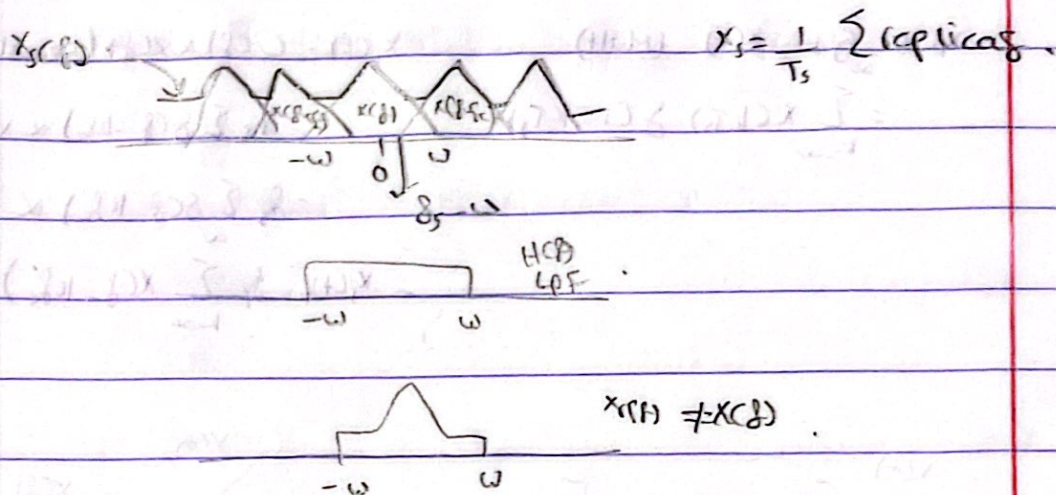 Xs(f) Xs = 1/Ts Σ replicas.
X(f+fs) X(f) X(f-fs)
-W 0 W
fs-W
H(f)
LPF
-W W
Xr(f) ≠ X(f).
-W W